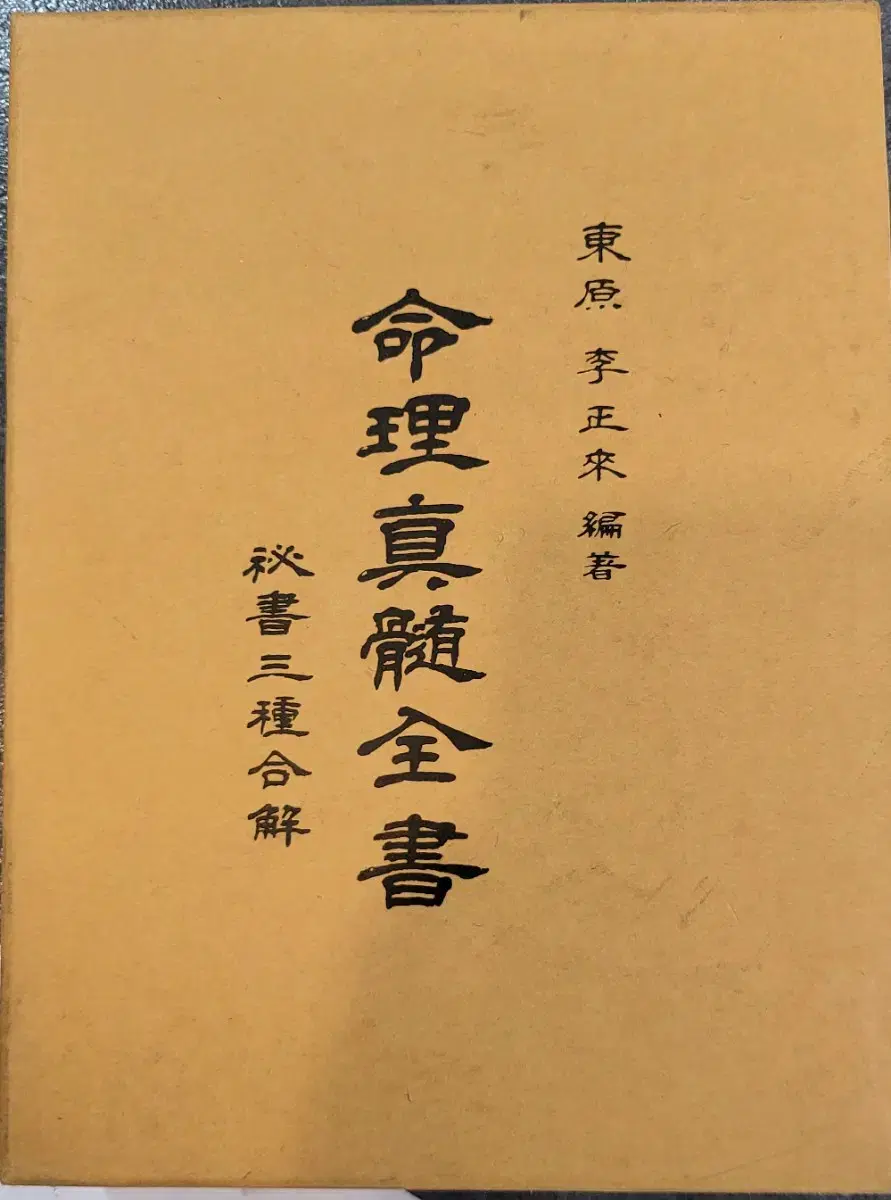 東原 李正來 編著
命理真髓全書
祕書三種合解